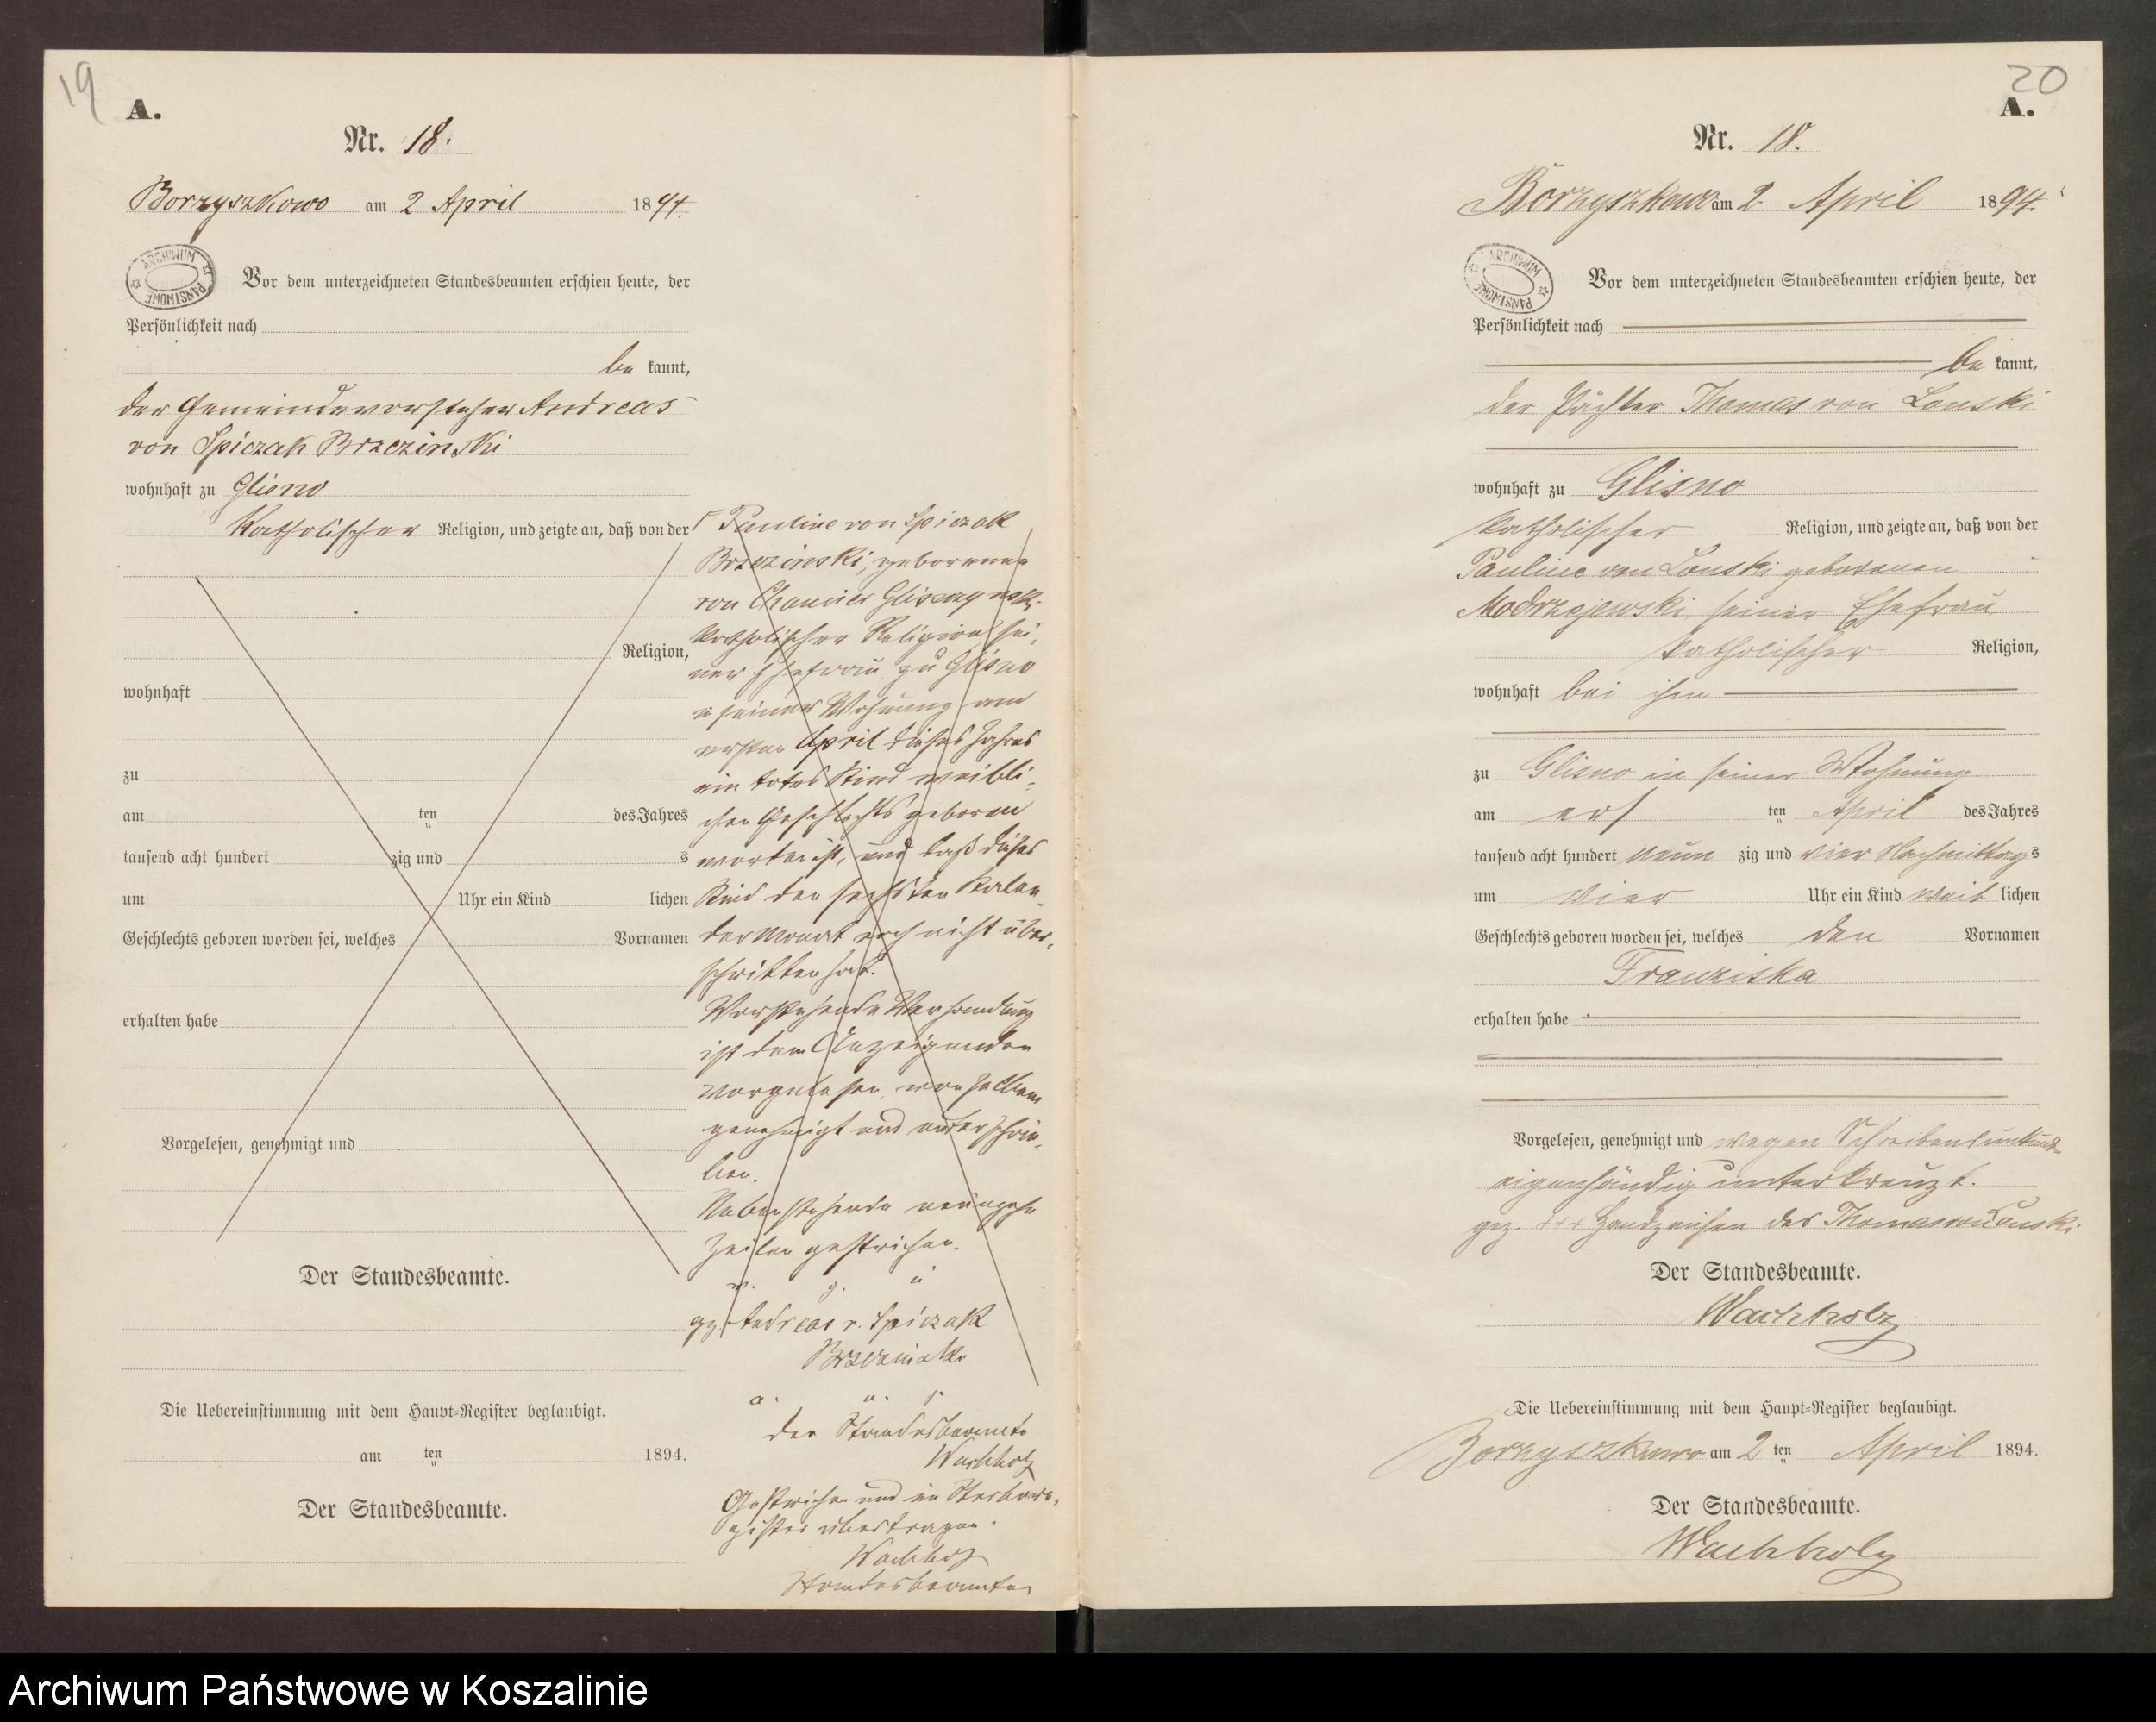 19
A.
Nr. 18.
Borzyszkowo am 2 April 1894.
ARCHIWUM PAŃSTWOWE
Vor dem unterzeichneten Standesbeamten erschien heute, der
Persönlichkeit nach
be kannt,
der Gemeindevorsteher Andreas
von Spiczak Brzezinski
wohnhaft zu Glisno
Katholischer Religion, und zeigte an, daß von der
Religion,
wohnhaft
zu
am ten des Jahres
tausend acht hundert zig und s
um Uhr ein Kind lichen
Geschlechts geboren worden sei, welches Vornamen
erhalten habe
Vorgelesen, genehmigt und
Der Standesbeamte.
Die Uebereinstimmung mit dem Haupt-Register beglaubigt.
am ten 1894.
Der Standesbeamte.
Pauline von Spiczak
Brzezinski, geborenen
von Chamier Gliszczynski
katholischer Religion sei-
ner Ehefrau zu Glisno
in seiner Wohnung am
ersten April dieses Jahres
ein todtes Kind weibli-
chen Geschlechts geboren
worden ist, und daß dieses
Kind den sechsten Kalen-
dermonat noch nicht über-
schritten hat.
Vorstehende Verhandlung
ist dem Anzeigenden
vorgelesen, von selbem
genehmigt und unterschrie-
ben.
Nebenstehende neunzehn
Zeilen gestrichen.
v. g. u
gz. Andreas v. Spiczak
Brzezinski
a. u. s.
der Standesbeamte
Wachholz
Gestrichen und im Sterbere-
gister übertragen.
Wachholz
Standesbeamter
20
A.
Nr. 18.
Borzyszkowo am 2. April 1894.
ARCHIWUM PAŃSTWOWE
Vor dem unterzeichneten Standesbeamten erschien heute, der
Persönlichkeit nach
be kannt,
der Pächter Thomas von Lonski
wohnhaft zu Glisno
katholischer Religion, und zeigte an, daß von der
Pauline von Lonski geborenen
Modrzejewski, seiner Ehefrau
katholischer Religion,
wohnhaft bei ihm
zu Glisno in seiner Wohnung
am ers ten April des Jahres
tausend acht hundert neun zig und vier Nachmittags
um vier Uhr ein Kind weib lichen
Geschlechts geboren worden sei, welches den Vornamen
Franziska
erhalten habe
Vorgelesen, genehmigt und wegen Schreibensunkunde
eigenhändig unterkreuzt.
gez. +++ Handzeichen des Thomas von Lonski.
Der Standesbeamte.
Wachholz
Die Uebereinstimmung mit dem Haupt-Register beglaubigt.
Borzyszkowo am 2 ten April 1894.
Der Standesbeamte.
Wachholz
Archiwum Państwowe w Koszalinie